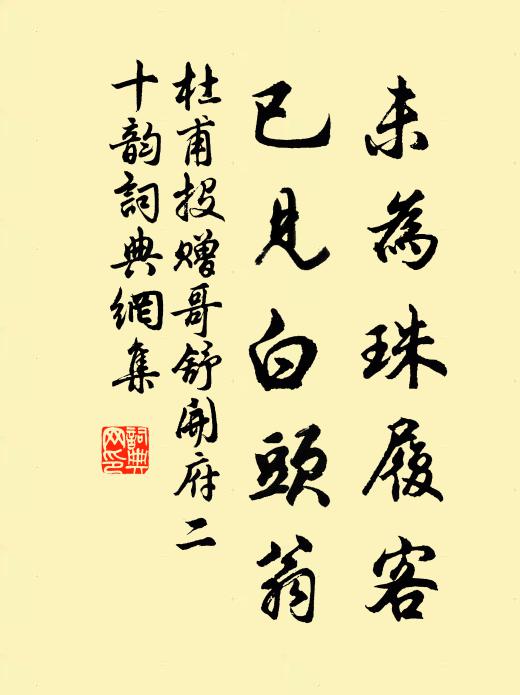 未為珠履客
已見白頭翁
杜甫投贈哥舒開府二
十韵詞典網集
詞典
网印